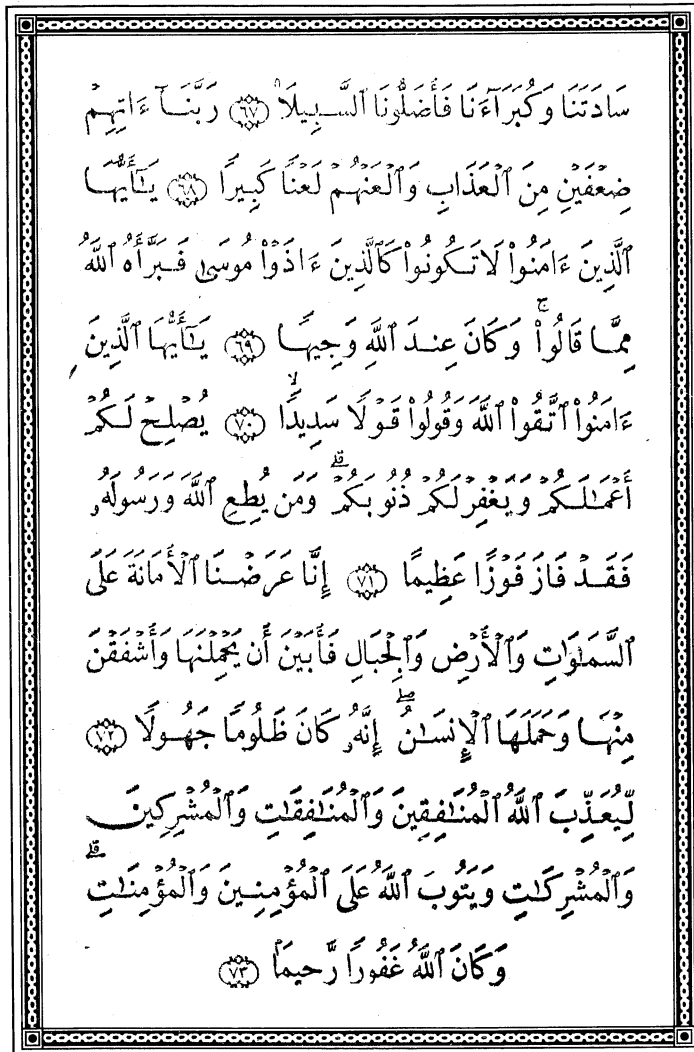 سَادَتَنَا وَكُبَرَآءَنَا فَأَضَلُّونَا ٱلسَّبِيلَا۠ ﴿٦٧﴾ رَبَّنَآ ءَاتِهِمْ
ضِعْفَيْنِ مِنَ ٱلْعَذَابِ وَٱلْعَنْهُمْ لَعْنًا كَبِيرًا ﴿٦٨﴾ يَـٰٓأَيُّهَا
ٱلَّذِينَ ءَامَنُوا۟ لَا تَكُونُوا۟ كَٱلَّذِينَ ءَاذَوْا۟ مُوسَىٰ فَبَرَّأَهُ ٱللَّهُ
مِمَّا قَالُوا۟ ۚ وَكَانَ عِندَ ٱللَّهِ وَجِيهًا ﴿٦٩﴾ يَـٰٓأَيُّهَا ٱلَّذِينَ
ءَامَنُوا۟ ٱتَّقُوا۟ ٱللَّهَ وَقُولُوا۟ قَوْلًا سَدِيدًا ۙ ﴿٧٠﴾ يُصْلِحْ لَكُمْ
أَعْمَـٰلَكُمْ وَيَغْفِرْ لَكُمْ ذُنُوبَكُمْ ۗ وَمَن يُطِعِ ٱللَّهَ وَرَسُولَهُۥ
فَقَدْ فَازَ فَوْزًا عَظِيمًا ﴿٧١﴾ إِنَّا عَرَضْنَا ٱلْأَمَانَةَ عَلَى
ٱلسَّمَـٰوَٰتِ وَٱلْأَرْضِ وَٱلْجِبَالِ فَأَبَيْنَ أَن يَحْمِلْنَهَا وَأَشْفَقْنَ
مِنْهَا وَحَمَلَهَا ٱلْإِنسَـٰنُ ۖ إِنَّهُۥ كَانَ ظَلُومًا جَهُولًا ﴿٧٢﴾
لِّيُعَذِّبَ ٱللَّهُ ٱلْمُنَـٰفِقِينَ وَٱلْمُنَـٰفِقَـٰتِ وَٱلْمُشْرِكِينَ
وَٱلْمُشْرِكَـٰتِ وَيَتُوبَ ٱللَّهُ عَلَى ٱلْمُؤْمِنِينَ وَٱلْمُؤْمِنَـٰتِ ۗ
وَكَانَ ٱللَّهُ غَفُورًا رَّحِيمًۢا ﴿٧٣﴾